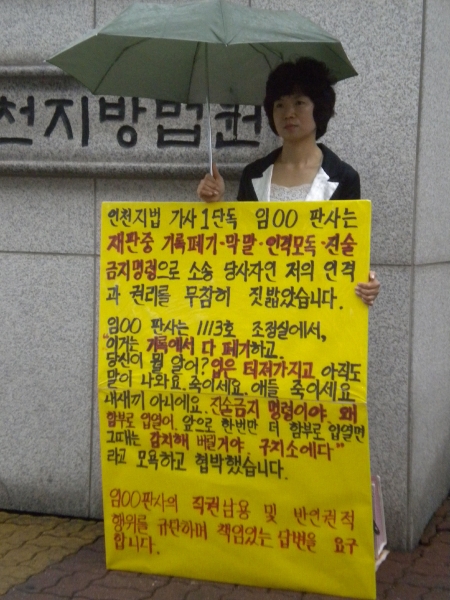 천지방법원
인천지법 가사1단독 임OO 판사는
재판중 기록폐기·막말·인격모독·진술
금지명령으로 소송 당사자인 저의 인격
과 권리를 무참히 짓밟았습니다.
임OO 판사는 1113호 조정실에서,
"이거는 기록에서 다 폐기하고.
당신이 뭘 알어? 입은 터져가지고 아직도
말이 나와요. 죽이세요. 애들 죽이세요
내새끼 아니에요. 진술금지 명령이야 왜
함부로 입열어. 앞으로 한번만 더 함부로 입열면
그때는 감치해 버릴거야. 구치소에다"
라고 모욕하고 협박했습니다.
임OO판사의 직권남용 및 반인권적
행위를 규탄하며 책임있는 답변을 요구
합니다.